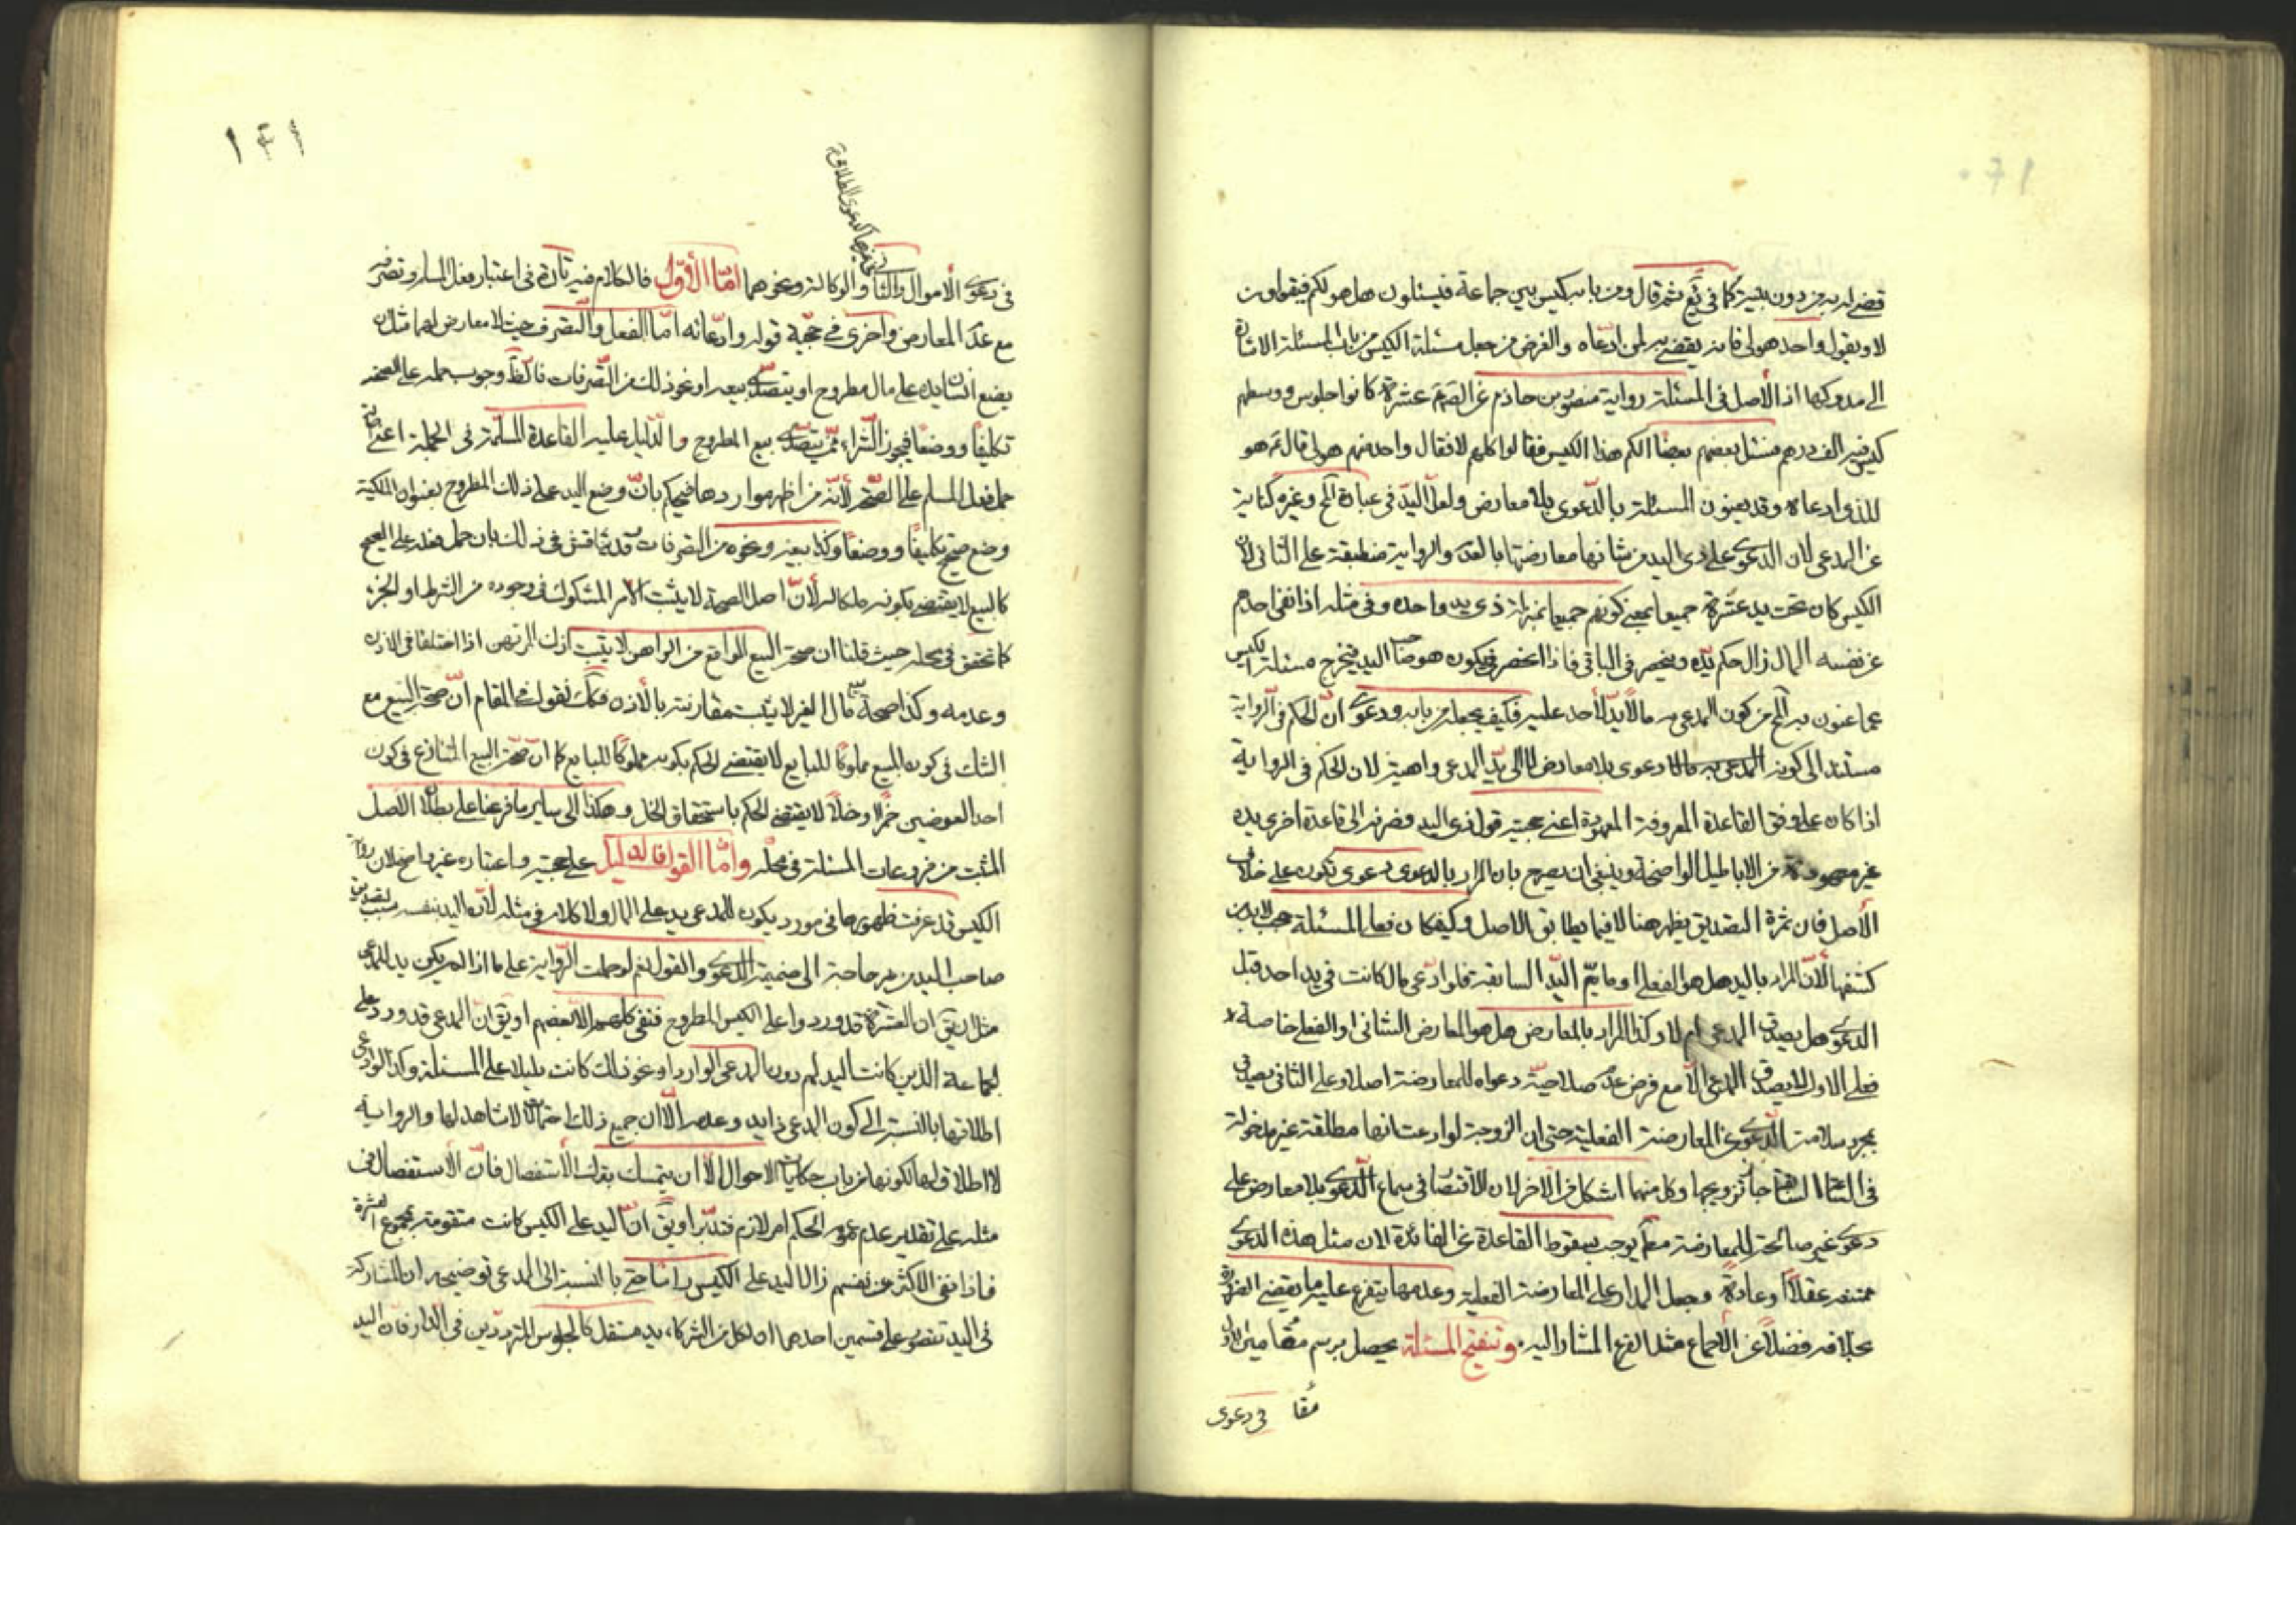 قضى له به من دون بينة كما في يع ثم قال ومن بابه كيس بين جماعة فيسئلون هل هو لكم فيقولون
لا ويقول واحد هو لي فانه يقضى به لمن ادعاه والغرض من جعل مسئلة الكيس من باب المسئلة الاشارة
الى مدركها اذ الأصل في المسئلة رواية منصور بن حازم عن الصم عشرة كانوا جلوس ووسطهم
كيس فيه الف درهم فسئل بعضهم بعضا الكم هذا الكيس فقالوا كلهم لا فقال واحد منهم هو لي قال ع هو
للذي ادعاه وقد يعنون المسئلة بالدعوى بلا معارض ولعل اليد في عبارة المح وغيره كناية
عن المدعي لان الدعوى على ذي اليد من شانها معارضتها باليد والرواية منطبقة على الثاني لان
الكيس كان تحت يد عشرة جميعا بمعنى كونهم جميعا بمنزلة ذي يد واحده وفي مثله اذا نفى احدهم
عن نفسه المال زال حكم يده وينحصر في الباقي فاذا انحصر في يكون هو صاحب اليد فيخرج مسئلة الكيس
عما عنون به المح من كون المدعى به مالا يد لأحد عليه فكيف يجعله من بابه ودعوى ان الحكم في الرواية
مستند الى كونه دعوى بلا معارض لا الى يد المدعي واهية لان الحكم في الرواية
اذا كان على وفق القاعدة المعروفة المعهودة اعني حجية قول ذي اليد فصرفه الى قاعدة اخرى بده
غير معهودة من الاباطيل الواضحة وينبغي ان يصرح بان المراد بالدعوى دعوى تكون على خلاف
الأصل فان ثمرة التصديق يظهر هنا لا فيما يطابق الاصل وكيف كان ففي المسئلة لابد من
كشفها لأن المراد باليد هل هو الفعلي او ما يعم اليد السابقة فلو ادعى مال كانت في يد احد قبل
الدعوى هل يصدق المدعي ام لا وكذا المراد بالمعارض هل هو المعارض الشاني او الفعلي خاصة
فعلى الاول لا يصدق المدعي الا مع فرض عدم صلاحية دعواه للمعارضة اصلا وعلى الثاني يصدق
بمجرد سلامة الدعوى عن المعارضة الفعلية حتى ان الزوجة لو ادعت انها مطلقة غير مدخولة
في جاز تزويجها وكل منهما اشكل من الآخر لان الاقتصار في سماع الدعوى بلا معارض على
دعوى غير صالحة للمعارضة يوجب سقوط القاعدة عن الفائدة لان مثل هذه الدعوى
ممتنعه عقلا او عادة وجعل المدار على المعارضة الفعلية وعدمها يتفرع عليه ما يقضى الضرورة
بخلافه فضلا عن الاجماع مثل الفرع المشار اليه وتنقيح المسئلة يحصل برسم مقامين الاول
في دعوى
١٤١
في دعوى الأموال والثاني والوكالة ونحوهما امّا الأوّل فالكلام فيه تارة في اعتبار فعل المسلم وتصرفه
مع عدم المعارض واخرى في حجية قوله وادعائه اما الفعل والتصرف حيث لا معارض لهما مثل ان
يضع انسان يده على مال مطروح او يتصدى بيعه او نحو ذلك من التصرفات فالظ وجوب حمله على الصحة
تكليفا ووضعا فيجوز الشراء ممن يتصدى بيع المطروح والدليل عليه القاعدة المسلمة في الجملة اعني
حمل فعل المسلم على الصحة لأنه من اظهر مواردها فيحكم بان وضع اليد على ذلك المطروح بعنوان الملكية
وضع صحيح تكليفا ووضعا وكذا بيعه ونحوه من التصرفات وقد يناقش في ذلك بان حمل فعله على الصحيح
كالبيع لا يقتضي بكونه ملكا له لأن اصل الصحة لا يثبت الأمر المشكوك في وجوده من الشرط او الجزء
كما تحقق في محله حيث قلنا ان صحة البيع الواقع من الراهن لا يثبت اذن المرتهن اذا اختلفا في الاذن
وعدمه وكذا صحة بيع مال الغير لا يثبت مقارنته بالأذن فكك نقول في المقام ان صحة البيع مع
الشك في كون المبيع مملوكا للبايع لا يقتضي الحكم بكونه مملوكا للبايع كما ان صحة البيع المتنازع في كون
احد العوضين خمرا وخلا لا يقتضي الحكم باستحقاق الخل وهكذا الى ساير ما فرعنا على بطلان الاصل
المثبت من فروعات المسئلة في محله وامّا القول فالدليل على حجيته واعتباره غير واضح لان رواية
الكيس قد عرفت ظهورها في مورد يكون للمدعي يد على المال ولا كلام في مثله لأن اليد بنفسه سبب لتصديق
صاحب اليد من غير حاجة الى ضميمة الدعوى والقول نعم لو حملت الرواية على ما اذا لم يكن يد للمدعي
مثل ان يق ان العشرة قد وردوا على الكيس المطروح فنفى كلهم الا بعضهم او يق ان المدعي قد ورد على
جماعة الذين كانت اليد لهم دون المدعي الوارد او نحو ذلك كانت دليلا على المسئلة وكذا لو ادعي
اطلاقها بالنسبة الى كون المدعي ذا يد وعدمه الا ان جميع ذلك احتمالات لا شاهد لها والرواية
لا اطلاق لها لكونها من باب حكايات الاحوال الا ان يتمسك بترك الأستفصال فان الأستفصال في
مثله على تقدير عدم عموم الحكم امر لازم فتدبر او يق ان اليد على الكيس كانت متقومة بمجموع العشرة
فاذا نفى الاكثر عن نفسهم زال اليد على الكيس راسا حتى بالنسبة الى المدعي توضيحه ان المشاركة
في اليد تتصور على قسمين احدهما ان لكل من الشركاء يد مستقل كالجلوس المترددين في الدار فان اليد